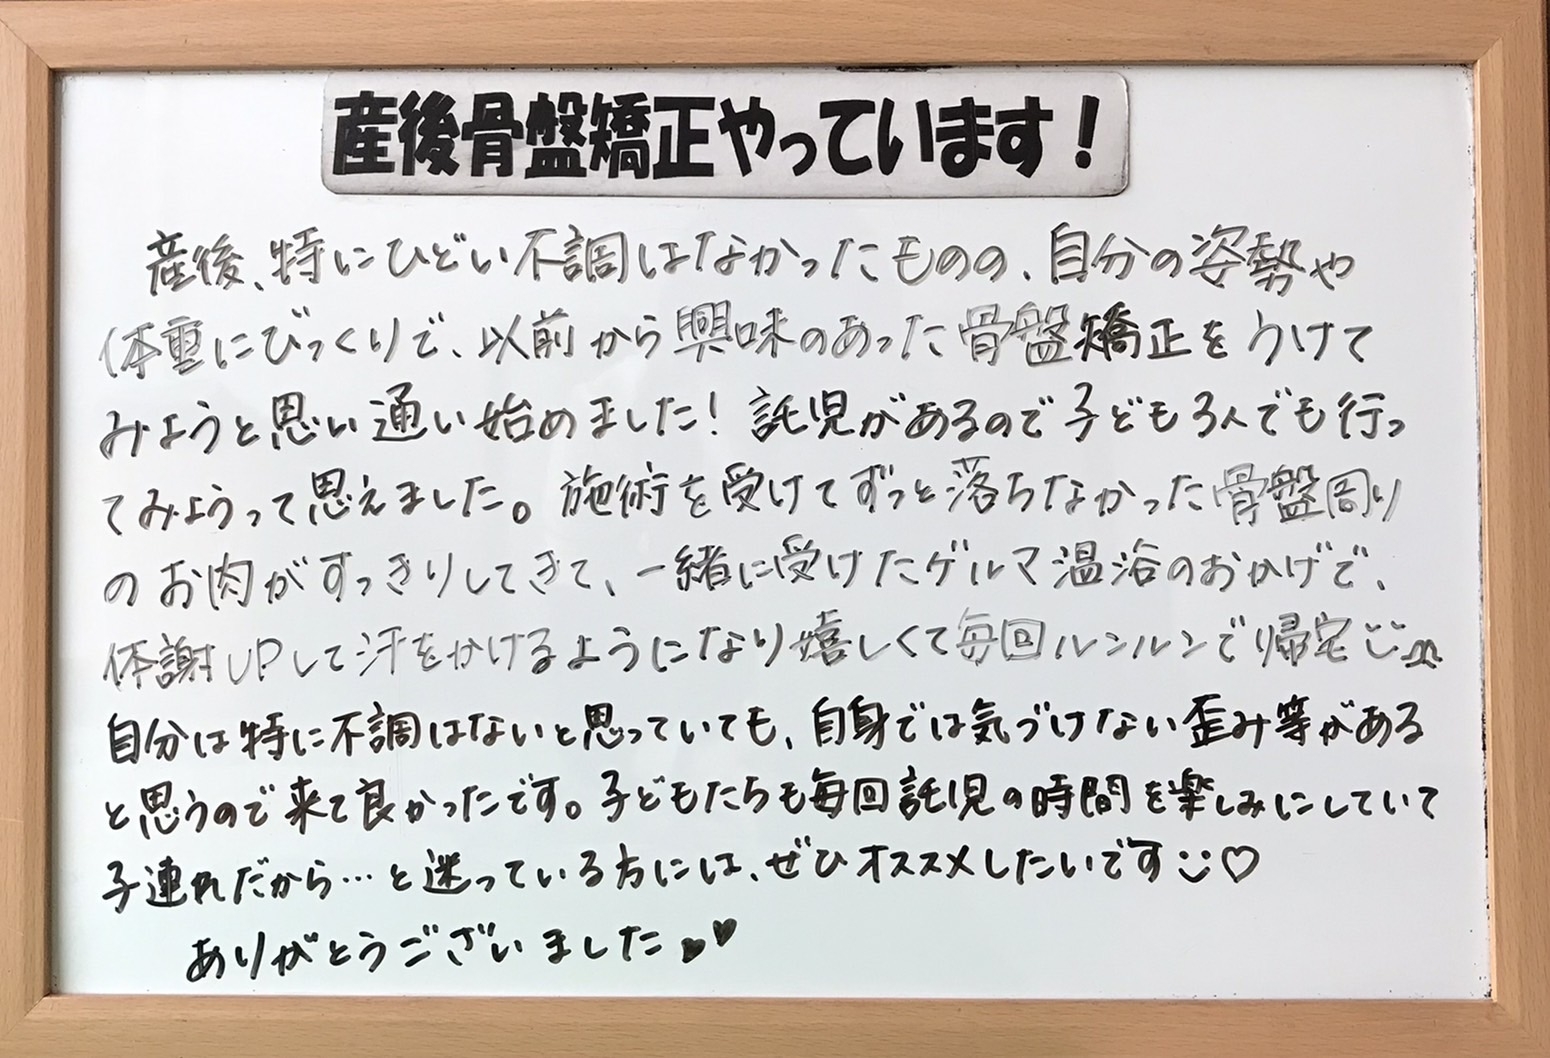 産後骨盤矯正やっています!
産後、特にひどい不調はなかったものの、自分の姿勢や
体重にびっくりで、以前から興味のあった骨盤矯正をうけて
みようと思い通い始めました!託児があるので子ども3人でも行っ
てみようって思えました。施術を受けてずっと落ちなかった骨盤周り
のお肉がすっきりしてきて、一緒に受けたゲルマ温浴のおかげで、
体謝UPして汗をかけるようになり嬉しくて毎回ルンルンで帰宅
自分は特に不調はないと思っていても、自身では気づけない歪み等がある
と思うので来て良かったです。子どもたちも毎回託児の時間を楽しみにしていて
子連れだから…と迷っている方には、ぜひオススメしたいです♡
ありがとうございました♥♥